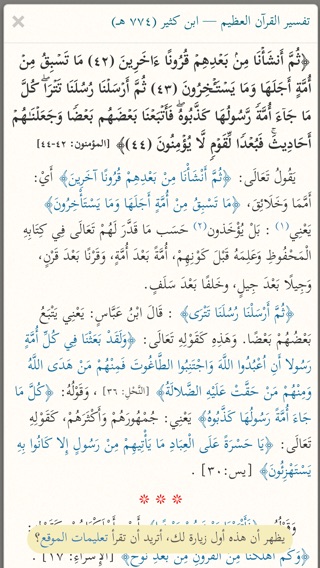 تفسير القرآن العظيم — ابن كثير (٧٧٤ هـ)
﴿ثُمَّ أَنشَأْنَا مِنۢ بَعْدِهِمْ قُرُونًا ءَاخَرِينَ (٤٢) مَا تَسْبِقُ مِنْ
أُمَّةٍ أَجَلَهَا وَمَا يَسْتَـْٔخِرُونَ (٤٣) ثُمَّ أَرْسَلْنَا رُسُلَنَا تَتْرَاۖ كُلَّ
مَا جَاۤءَ أُمَّةࣰ رَّسُولُهَا كَذَّبُوهُۖ فَأَتْبَعْنَا بَعْضَهُم بَعْضࣰا وَجَعَلْنَـٰهُمْ
أَحَادِيثَۚ فَبُعْدࣰا لِّقَوْمࣲ لَّا يُؤْمِنُونَ (٤٤)﴾ [المؤمنون: ٤٢-٤٤]
يَقُولُ تَعَالَى: ﴿ثُمَّ أَنْشَأْنَا مِنْ بَعْدِهِمْ قُرُونًا آخَرِينَ﴾ أَيْ:
أُمَمًا وَخَلَائِقَ، ﴿مَا تَسْبِقُ مِنْ أُمَّةٍ أَجَلَهَا وَمَا يَسْتَأْخِرُونَ﴾
يَعْنِي(١) : بَلْ يُؤْخَذون(٢) حَسَب مَا قَدَّرَ لَهُمْ تَعَالَى فِي كِتَابِهِ
الْمَحْفُوظِ وَعَلِمَهُ قَبْلَ كَوْنِهِمْ، أُمَّةً بَعْدَ أُمَّةٍ، وَقَرْنًا بَعْدَ قَرْنٍ،
وَجِيلًا بَعْدَ جِيلٍ، وخلَفًا بَعْدَ سَلَفٍ.
﴿ثُمَّ أَرْسَلْنَا رُسُلَنَا تَتْرَى﴾ : قَالَ ابْنُ عَبَّاسٍ: يَعْنِي يَتْبَعُ
بَعْضُهُمْ بَعْضًا. وَهَذِهِ كَقَوْلِهِ تَعَالَى: ﴿وَلَقَدْ بَعَثْنَا فِي كُلِّ أُمَّةٍ
رَسُولا أَنِ اُعْبُدُوا اللَّهَ وَاجْتَنِبُوا الطَّاغُوتَ فَمِنْهُمْ مَنْ هَدَى اللَّهُ
وَمِنْهُمْ مَنْ حَقَّتْ عَلَيْهِ الضَّلالَةُ﴾ [النَّحْلِ: ٣٦] ، وَقَوْلُهُ: ﴿كُلَّ مَا
جَاءَ أُمَّةً رَسُولُهَا كَذَّبُوهُ﴾ يَعْنِي: جُمْهُورَهُمْ وَأَكْثَرَهُمْ، كَقَوْلِهِ
تَعَالَى: ﴿يَا حَسْرَةً عَلَى الْعِبَادِ مَا يَأْتِيهِمْ مِنْ رَسُولٍ إِلا كَانُوا بِهِ
يَسْتَهْزِئُونَ﴾ [يس:٣٠] .
يظهر أن هذه أول زيارة لك، أتريد أن تقرأ تعليمات الموقع؟
﴿وَكَمْ أَهْلَكْنَا مِنَ الْقُرُونِ مِنْ بَعْدِ نُوحٍ﴾ [الْإِسْرَاءِ: ١٧] .